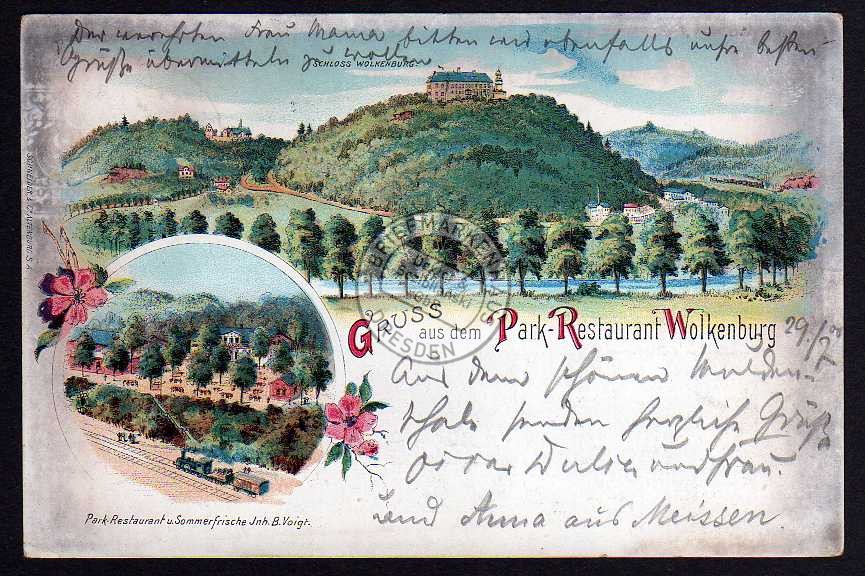 Der verehrten Frau Mama bitten wir ebenfalls unsre besten
Grüße übermitteln zu wollen.
SCHLOSS WOLKENBURG.
BRIEFMARKENHAUS
DRESDEN
GRUSS aus dem Park-Restaurant Wolkenburg
29./7. 00
Aus dem schönen Mulden-
thale senden herzliche Grüße
und Frau.
Anna aus Meissen.
Park-Restaurant u. Sommerfrische Jnh. B. Voigt.